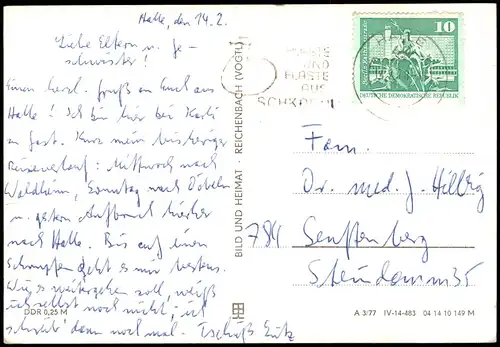 Halle, den 14.2.
Liebe Eltern u. Ge-
schwister!
Einen herzl. Gruß an Euch aus
Halle! Ich bin hier bei Karli
zu Gast. Kurz mein bisheriger
Reiseverlauf: Mittwoch nach
Waldheim, Sonntag nach Döbeln
u. gestern Aufbruch hierher
nach Halle. Bis auf einen
Schnupfen geht es mir bestens.
Wie es weitergehen soll, weiß
ich selbst noch nicht, ich
schreib' dann noch mal. Tschüß
DDR 0,25 M
BILD UND HEIMAT · REICHENBACH (VOGTL)
UND
AUS
10
DEUTSCHE DEMOKRATISCHE REPUBLIK
Fam.
Dr. med. J. Hillbig
784 Senftenberg
35
A 3/77 IV-14-483 04 14 10 149 M